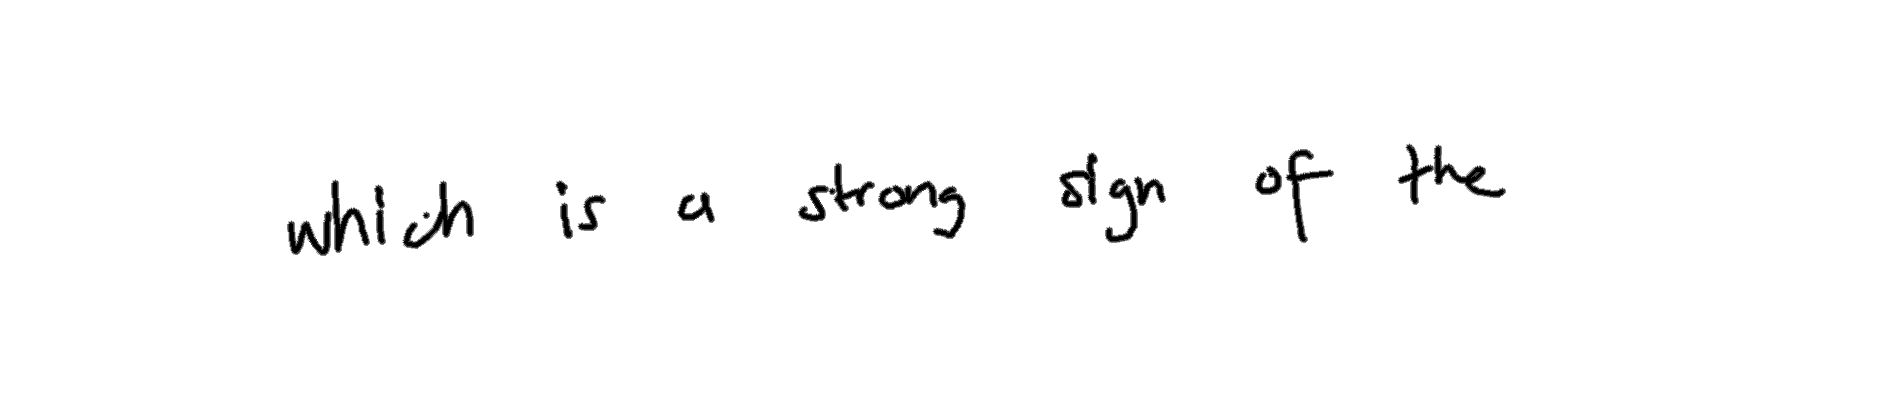 which is a strong sign of the